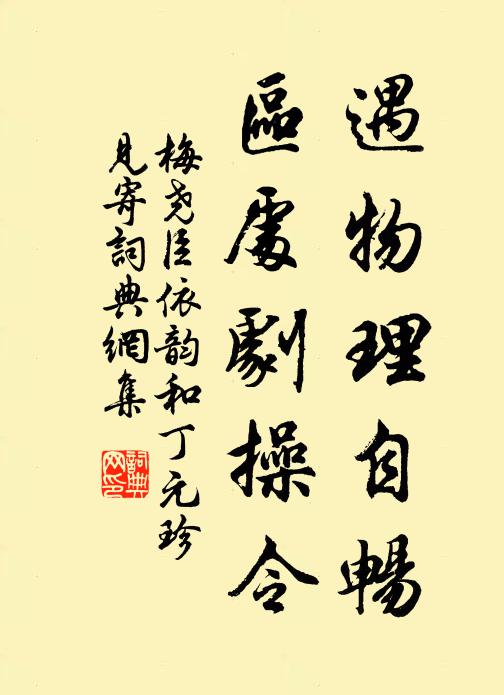 遇物理自暢
區處劇操令
梅堯臣依韵和丁元珍
見寄詞典網集
詞典
网印